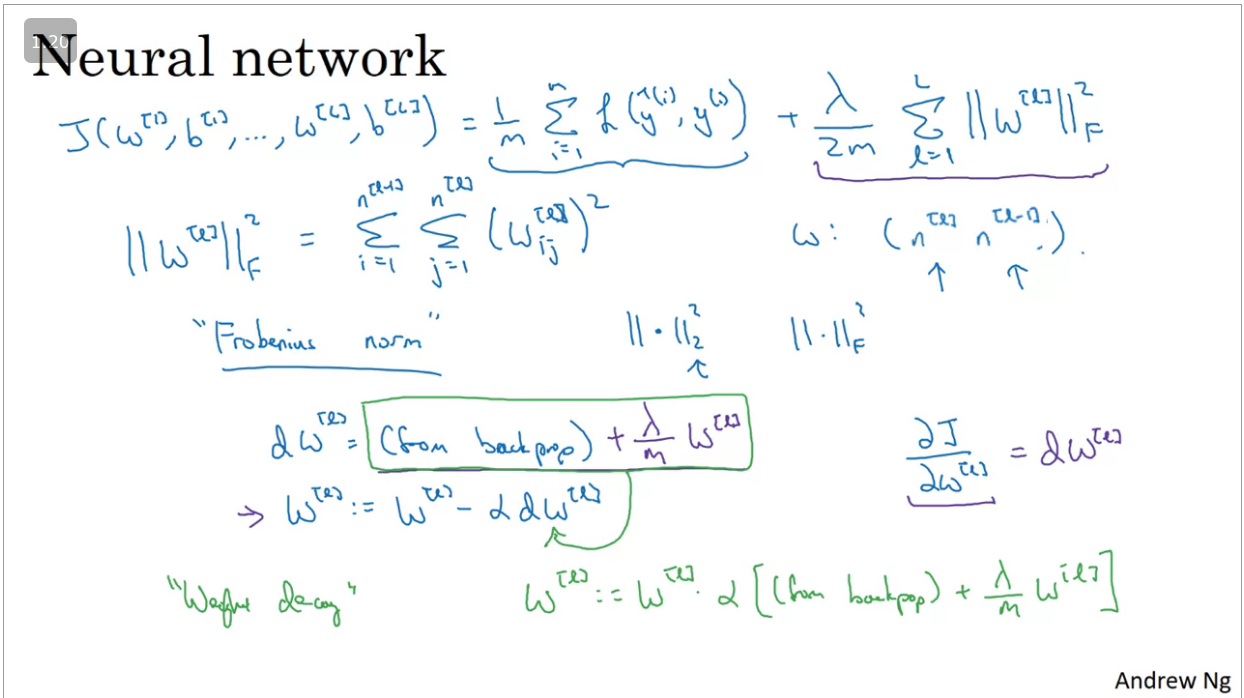 1.20
Neural network
J(w^[1], b^[1], ..., w^[L], b^[L]) = 1/m ∑_{i=1}^{m} ℒ(ŷ^(i), y^(i)) + λ/2m ∑_{l=1}^{L} ||w^[l]||_F^2
||w^[l]||_F^2 = ∑_{i=1}^{n^[l-1]} ∑_{j=1}^{n^[l]} (w_ij^[l])^2 w: (n^[l] n^[l-1]).
"Frobenius norm" ||·||_2^2 ||·||_F^2
dw^[l] = (from backprop) + λ/m w^[l] ∂J/∂w^[l] = dw^[l]
→ w^[l] := w^[l] - α dw^[l]
"Weight decay" w^[l] := w^[l] - α [(from backprop) + λ/m w^[l]]
Andrew Ng